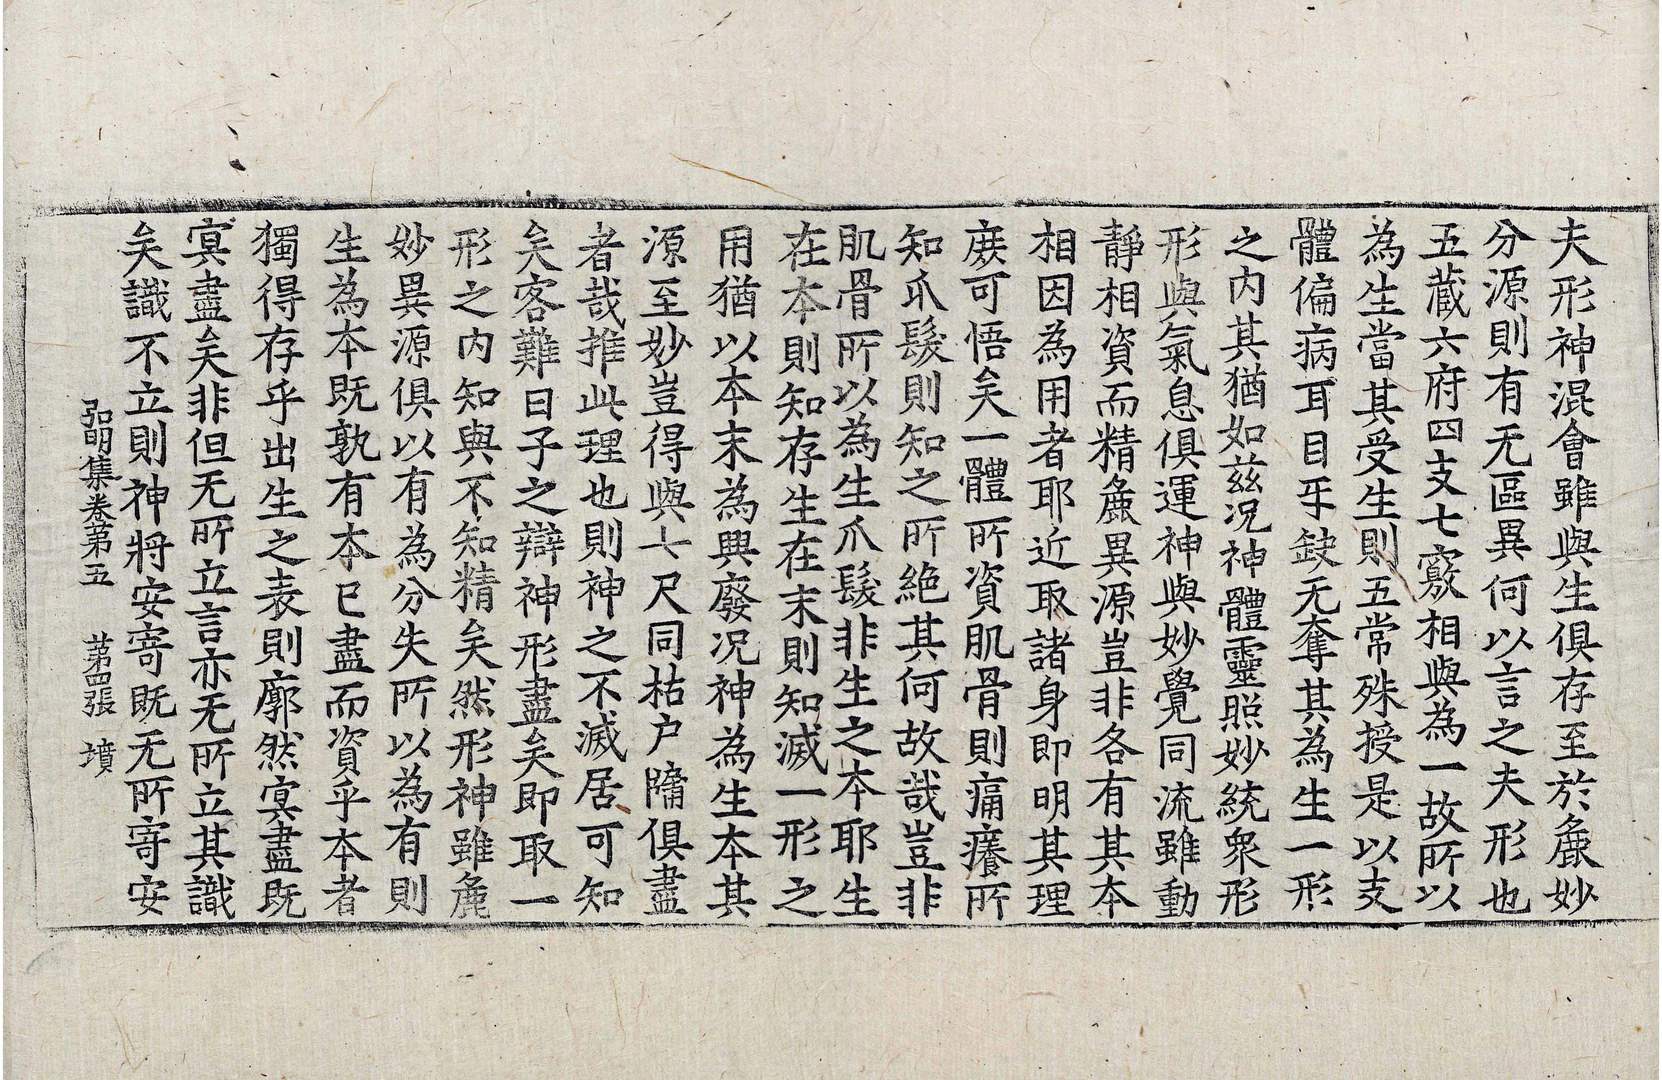 夫形神混會雖與生俱存至於麁妙
分源則有无區異何以言之夫形也
五藏六府四支七竅相與為一故所以
為生當其受生則五常殊授是以支
體偏病耳目乎缺无奪其為生一形
之内其猶如兹况神體靈照妙統衆形
形與氣息俱運神與妙覺同流雖動
靜相資而精麁異源豈非各有其本
相因為用者耶近取諸身即明其理
庻可悟矣一體所資肌骨則痛癢所
知爪髮則知之所絶其何故哉豈非
肌骨所以為生爪髮非生之本耶生
在本則知存生在末則知滅一形之
用猶以本末為興廢况神為生本其
源至妙豈得與七尺同枯户牖俱盡
者哉推此理也則神之不滅居可知
矣客難曰子之辯神形盡矣即取一
形之内知與不知精矣然形神雖麁
妙異源俱以有為分夫所以為有則
生為本既孰有本巳盡而資乎本者
獨得存乎出生之表則廓然㝠盡既
㝠盡矣非但无所立言亦无所立其識
矣識不立則神將安寄既无所寄安
弘明集卷第五 第四張 墳